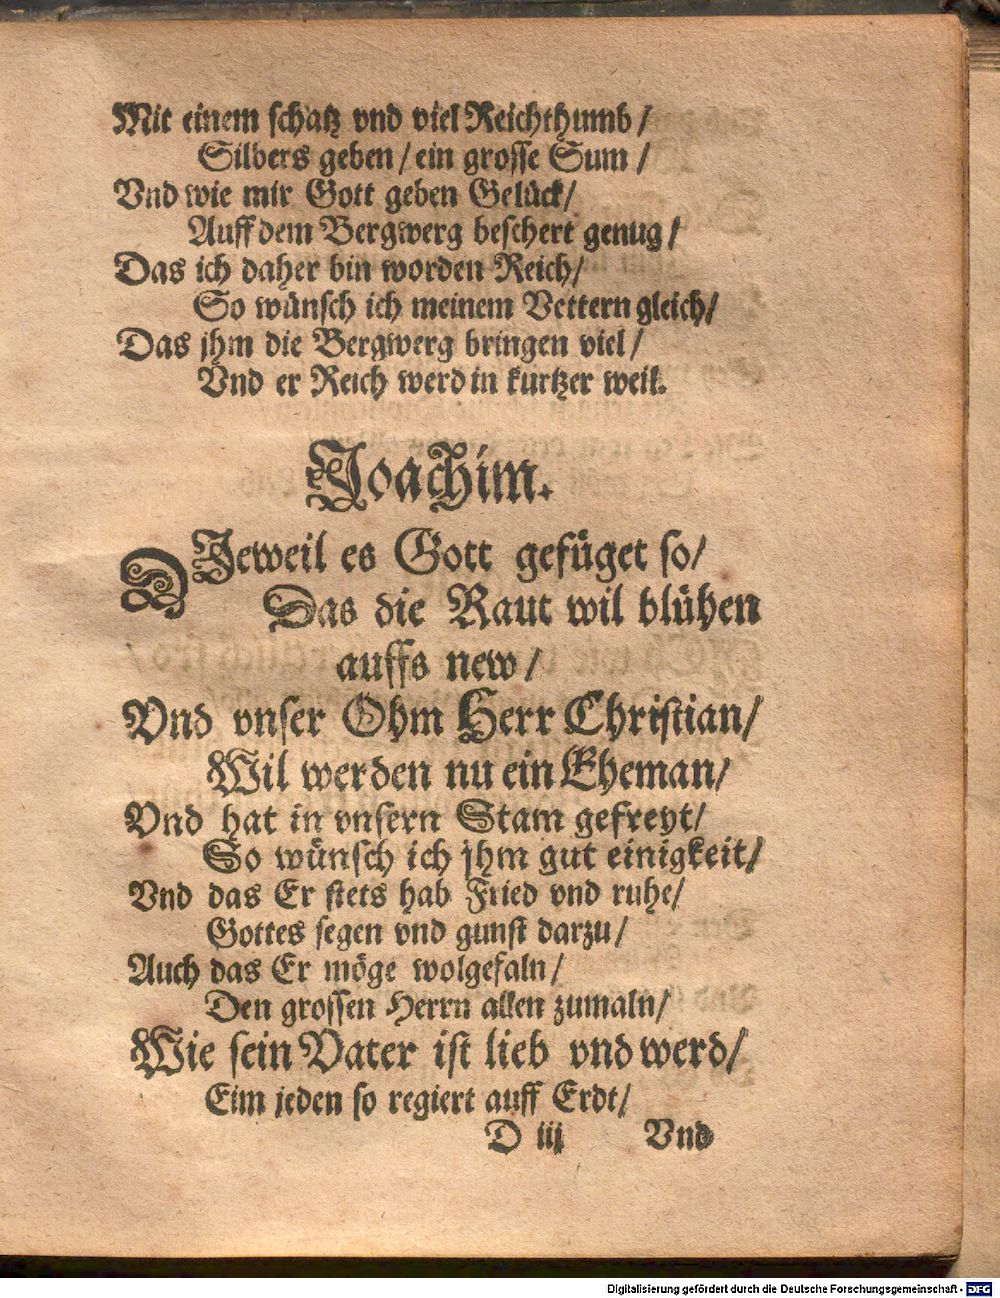 Mit einem schatz vnd viel Reichthumb /
Silbers geben / ein grosse Sum /
Vnd wie mir Gott geben Gelück /
Auff dem Bergwerg beschert genug /
Das ich daher bin worden Reich /
So wünsch ich meinem Vettern gleich /
Das jhm die Bergwerg bringen viel /
Vnd er Reich werd in kurtzer weil.
Joachim.
DJeweil es Gott gefüget so /
Das die Raut wil blühen
auffs new /
Vnd vnser Ohm Herr Christian /
Wil werden nu ein Eheman /
Vnd hat in vnsern Stam gefreyt /
So wünsch ich jhm gut einigkeit /
Vnd das Er stets hab Fried vnd ruhe /
Gottes segen vnd gunst darzu /
Auch das Er möge wolgefaln /
Den grossen Herrn allen zumaln /
Wie sein Vater ist lieb vnd werd /
Eim jeden so regiert auff Erdt /
D iij Vnd
Digitalisierung gefördert durch die Deutsche Forschungsgemeinschaft - DFG